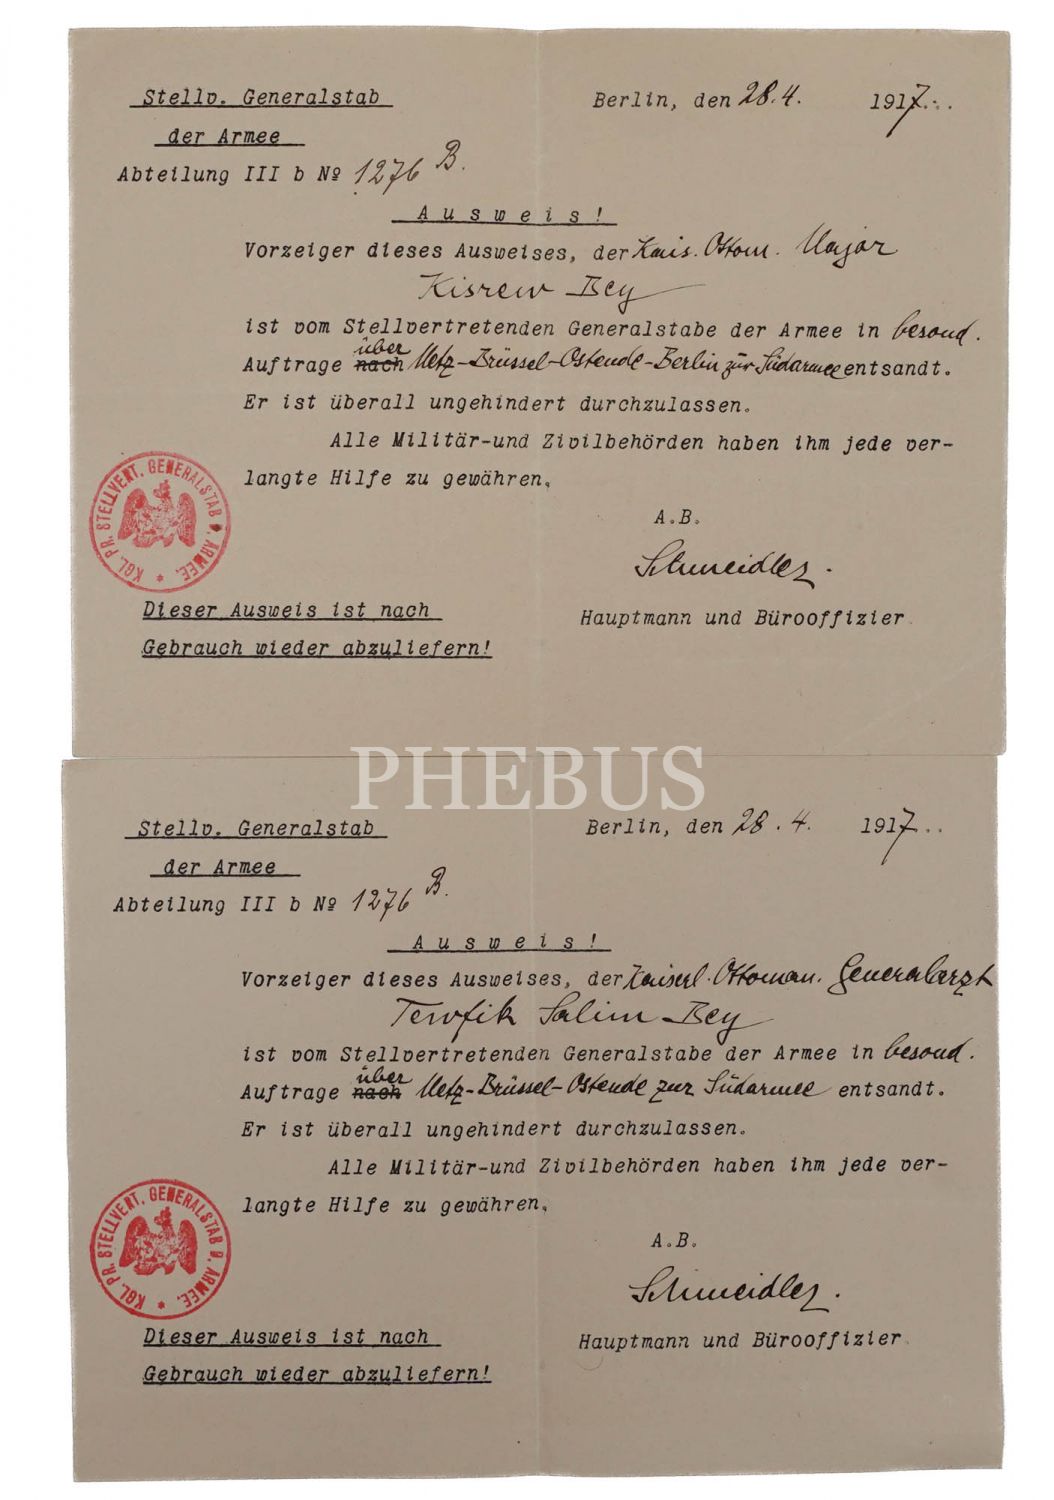 Stellv. Generalstab
der Armee
Abteilung III b № 1276 B.
Berlin, den 28.4. 1917...
Ausweis!
Vorzeiger dieses Ausweises, der Kais. Ottom. Major
Kisrew Bey
ist vom Stellvertretenden Generalstabe der Armee in besond.
über
Auftrage nach Metz-Brüssel-Ostende-Berlin zur Südarmee entsandt.
Er ist überall ungehindert durchzulassen.
Alle Militär-und Zivilbehörden haben ihm jede ver-
langte Hilfe zu gewähren.
KGL. PR. STELLVERT. GENERALSTAB D. ARMEE. *
A.B.
Schmeidler.
Hauptmann und Bürooffizier.
Dieser Ausweis ist nach
Gebrauch wieder abzuliefern!
PHEBUS
Stellv. Generalstab
der Armee
Abteilung III b № 1276 B.
Berlin, den 28.4. 1917...
Ausweis!
Vorzeiger dieses Ausweises, der Kaiserl. Ottoman. Generalarzt
Tewfik Salim Bey
ist vom Stellvertretenden Generalstabe der Armee in besond.
über
Auftrage nach Metz-Brüssel-Ostende zur Südarmee entsandt.
Er ist überall ungehindert durchzulassen.
Alle Militär-und Zivilbehörden haben ihm jede ver-
langte Hilfe zu gewähren.
KGL. PR. STELLVERT. GENERALSTAB D. ARMEE. *
A.B.
Schmeidler.
Hauptmann und Bürooffizier.
Dieser Ausweis ist nach
Gebrauch wieder abzuliefern!